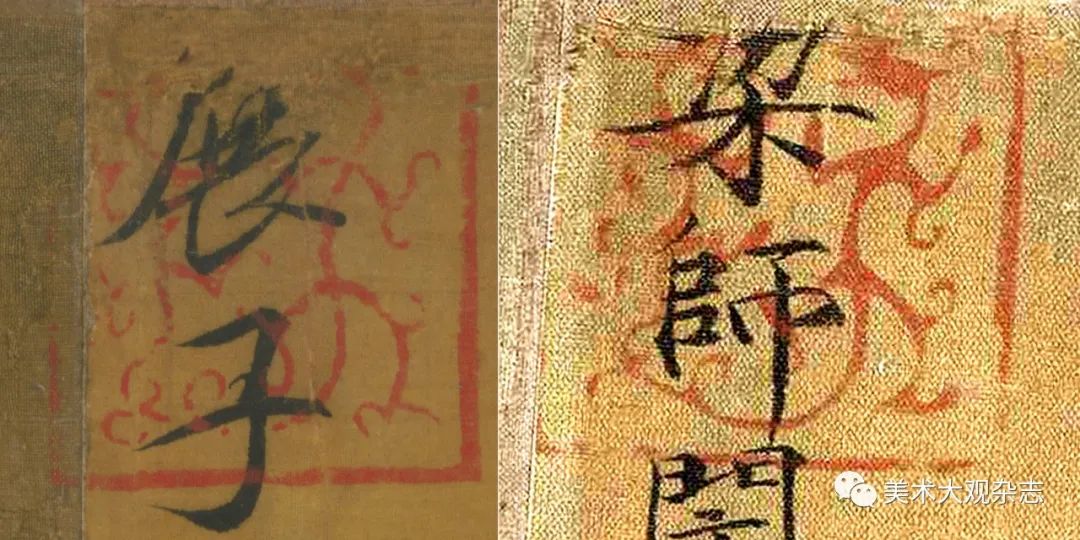 展子
梁師閔
美术大观杂志